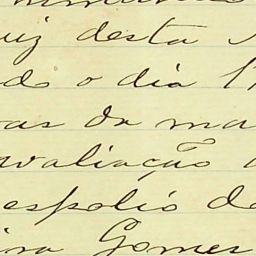 uiz desta
do o dia 1
ras da ma
avaliação
espolio de
ira Gomes